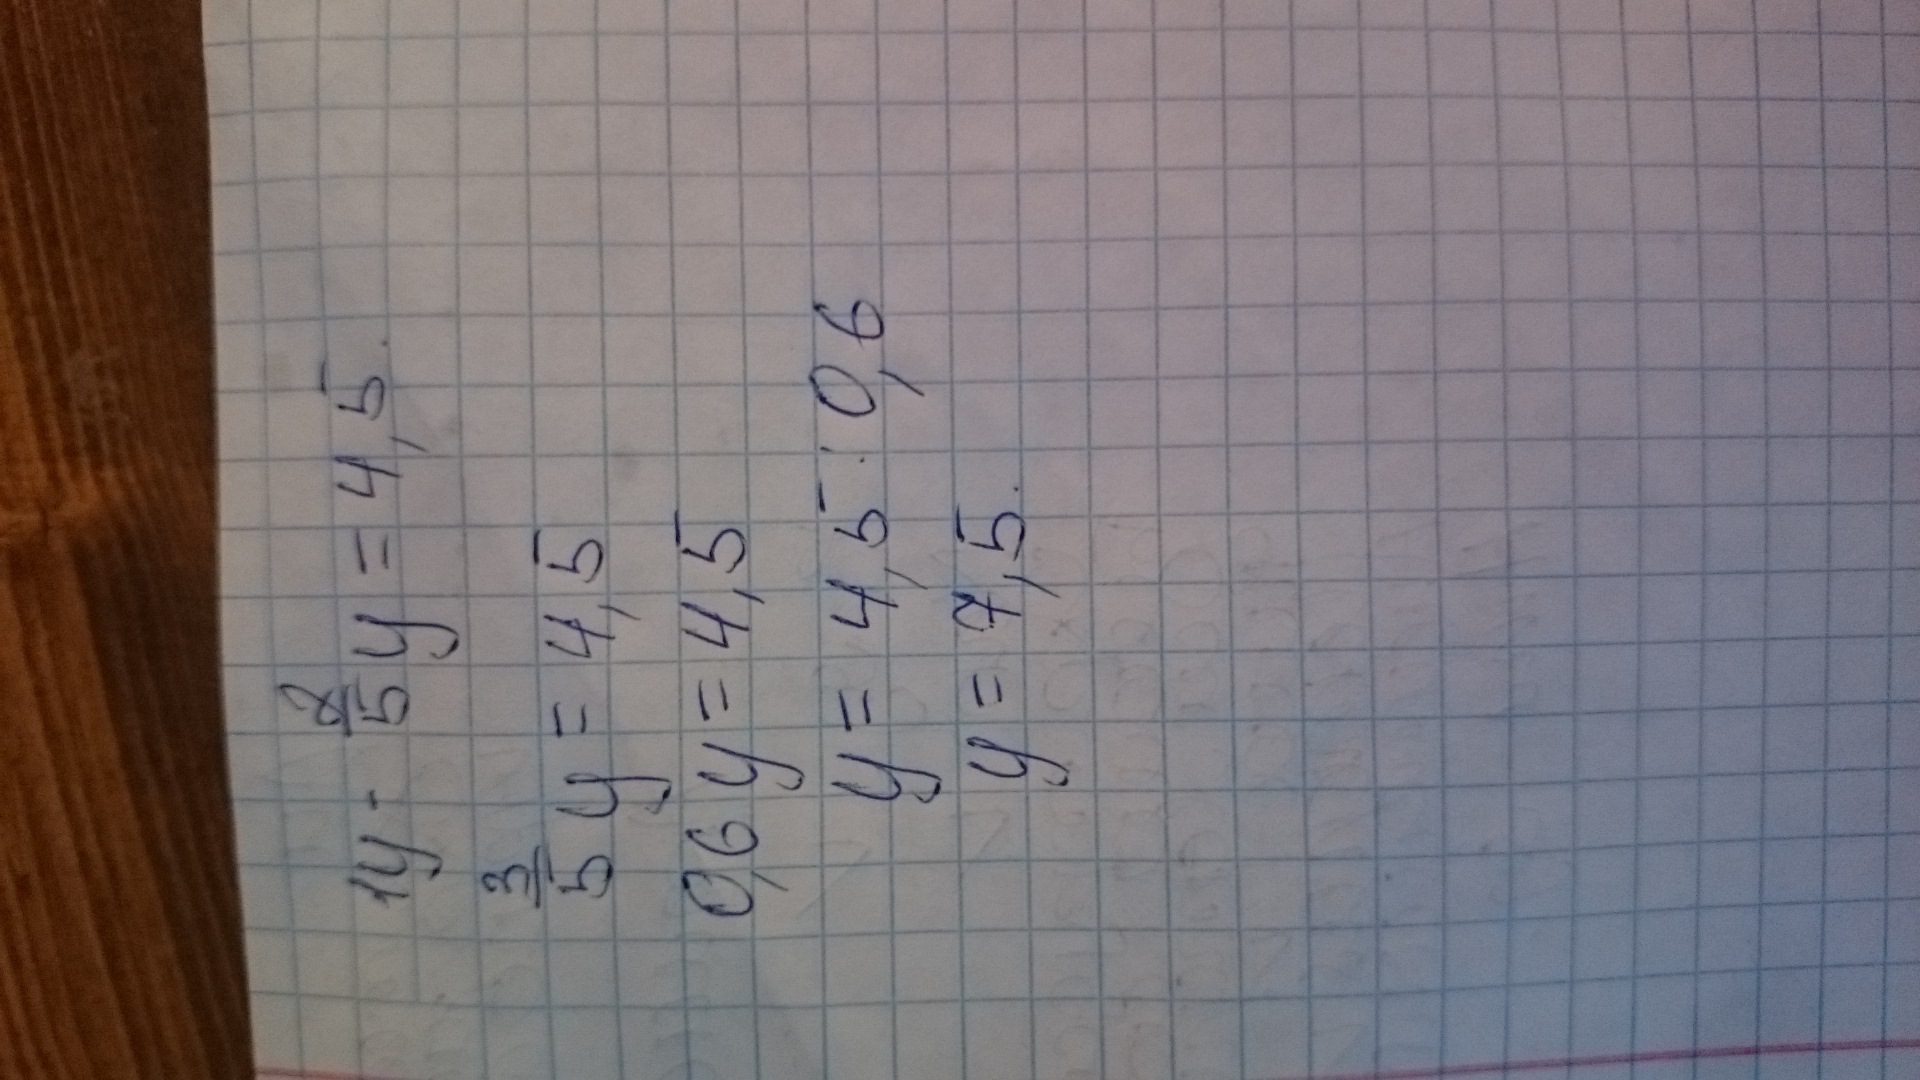 1y - 2/5 y = 4,5.
3/5 y = 4,5
0,6 y = 4,5
y = 4,5 : 0,6
y = 7,5.